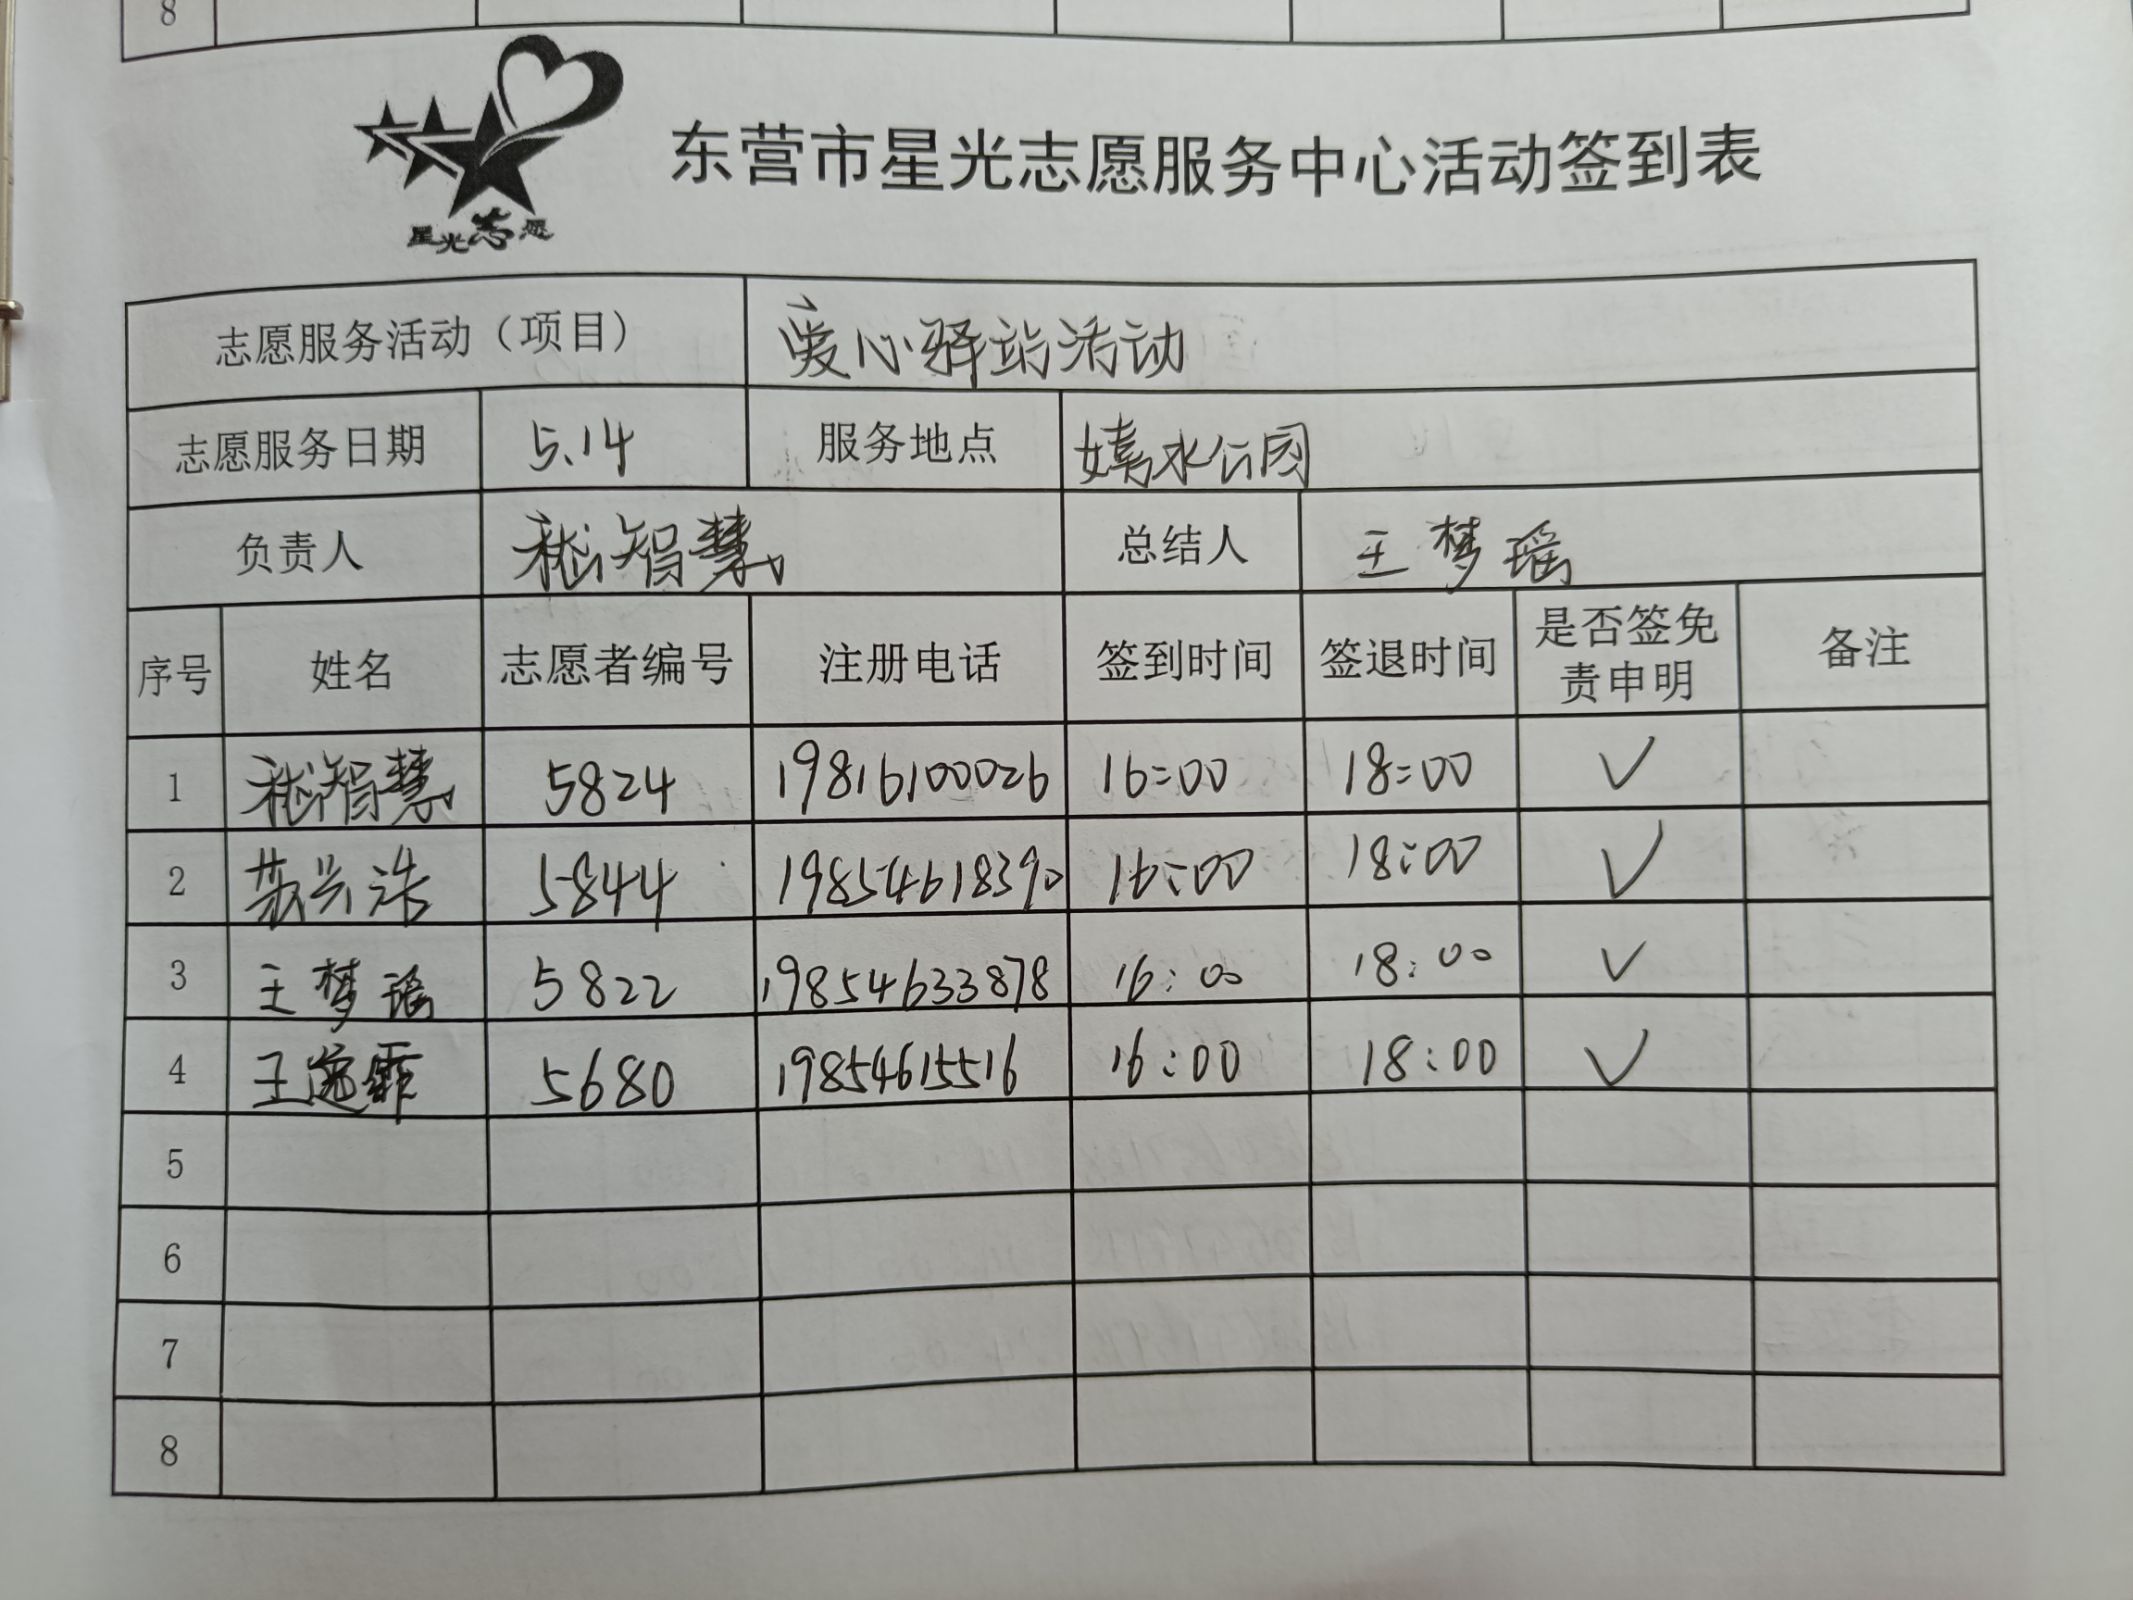 8
星光志愿
东营市星光志愿服务中心活动签到表
志愿服务活动（项目） 爱心驿站活动
志愿服务日期 5.14 服务地点 嬉水公园
负责人 嵇智慧 总结人 王梦瑶
序号 姓名 志愿者编号 注册电话 签到时间 签退时间 是否签免责申明 备注
1 嵇智慧 5824 19816100026 16:00 18:00 ✓
2 苏兴浩 5844 19854618390 16:00 18:00 ✓
3 王梦瑶 5822 19854633878 16:00 18:00 ✓
4 王逸霏 5680 19854615516 16:00 18:00 ✓
5
6
7
8